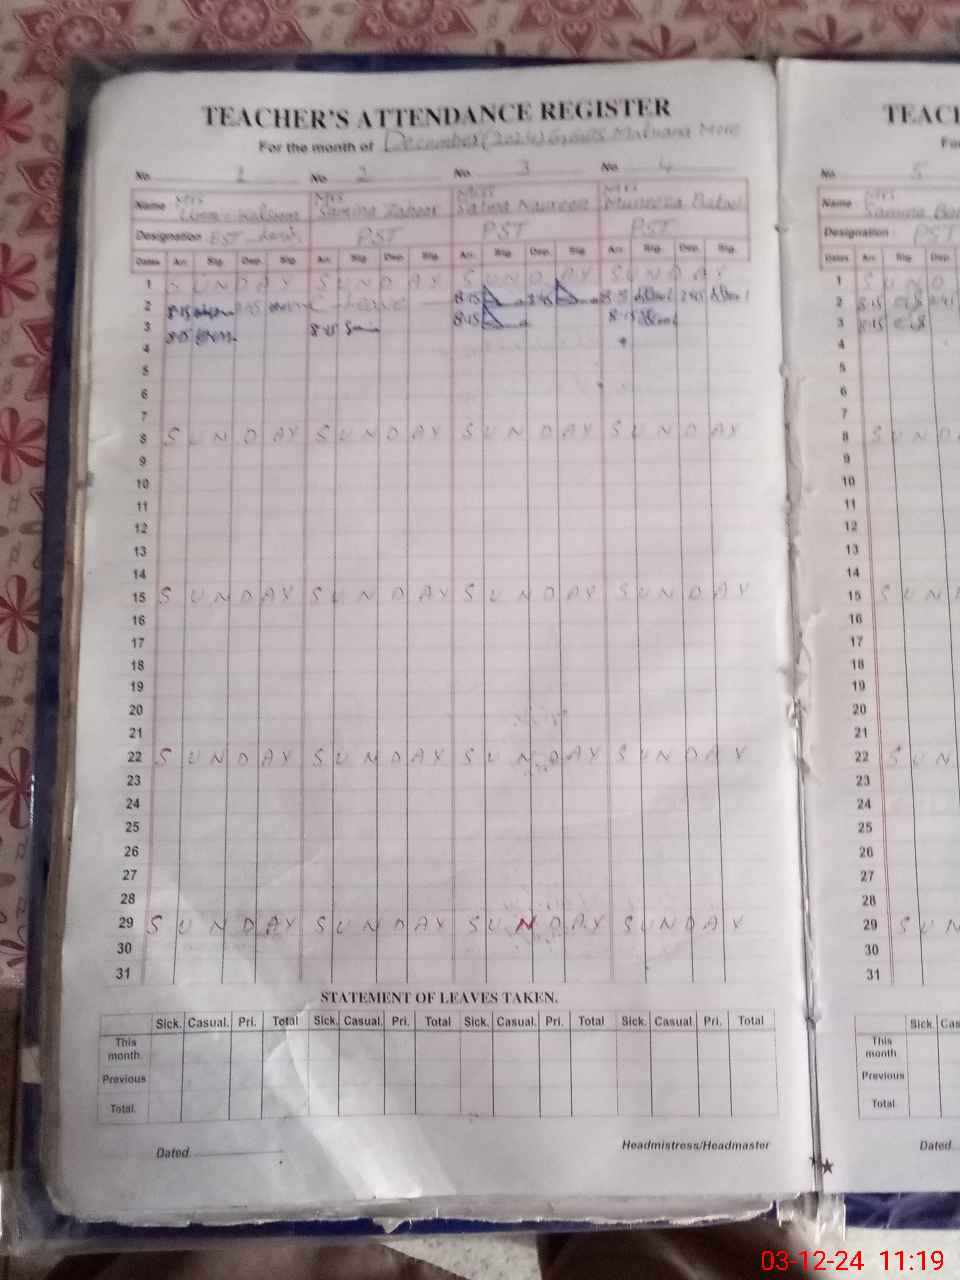 TEACHER'S ATTENDANCE REGISTER
For the month of December (2024)
No. 1 No. 2 No. 3 No. 4
Name Mrs Mrs Samina Zahoor Miss Salma Naureen Mrs
Designation EST PST PST PST
Dates Arr. Sig. Dep. Sig. Arr. Sig. Dep. Sig. Arr. Sig. Dep. Sig. Arr. Sig. Dep. Sig.
1 SUNDAY SUNDAY SUNDAY SUNDAY
2 8·15 Leave 8·15 2·45 2·45
3 8·15 8·15 8·15 8·15
4
5
6
7
8 SUNDAY SUNDAY SUNDAY SUNDAY
9
10
11
12
13
14
15 SUNDAY SUNDAY SUNDAY SUNDAY
16
17
18
19
20
21
22 SUNDAY SUNDAY SUNDAY SUNDAY
23
24
25
26
27
28
29 SUNDAY SUNDAY SUNDAY SUNDAY
30
31
STATEMENT OF LEAVES TAKEN.
Sick. Casual. Pri. Total Sick. Casual. Pri. Total Sick. Casual. Pri. Total Sick. Casual. Pri. Total
This month.
Previous
Total.
Dated. Headmistress/Headmaster
TEAC
For
No. 5
Name Mrs Samina
Designation PST
Dates Arr. Sig. Dep.
1 SUND
2 8·15 2·45
3 8·15
4
5
6
7
8 SUND
9
10
11
12
13
14
15 SUN
16
17
18
19
20
21
22 SUN
23
24
25
26
27
28
29 SUN
30
31
Sick. Cas
This month.
Previous
Total.
Dated.
03-12-24 11:19